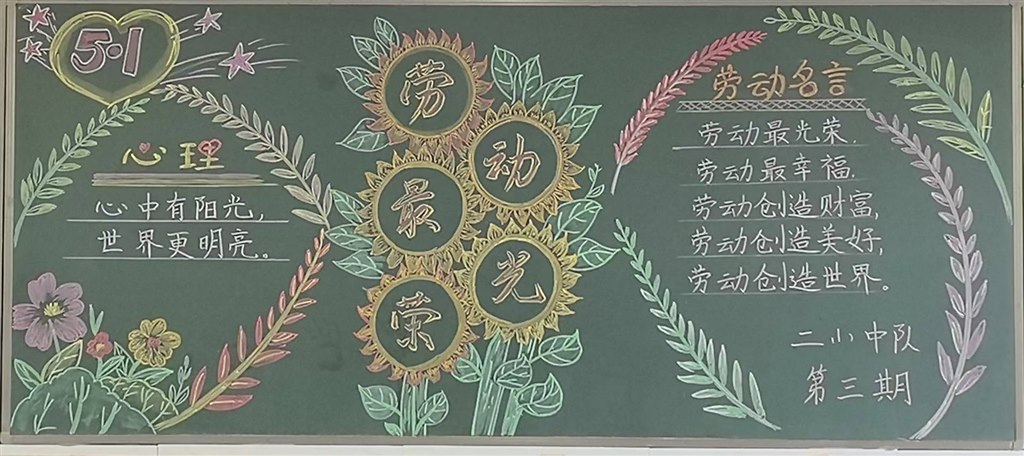 5·1
心理
心中有阳光,
世界更明亮。
劳
动
最
光
荣
劳动名言
劳动最光荣.
劳动最幸福.
劳动创造财富,
劳动创造美好,
劳动创造世界。
二小中队
第三期